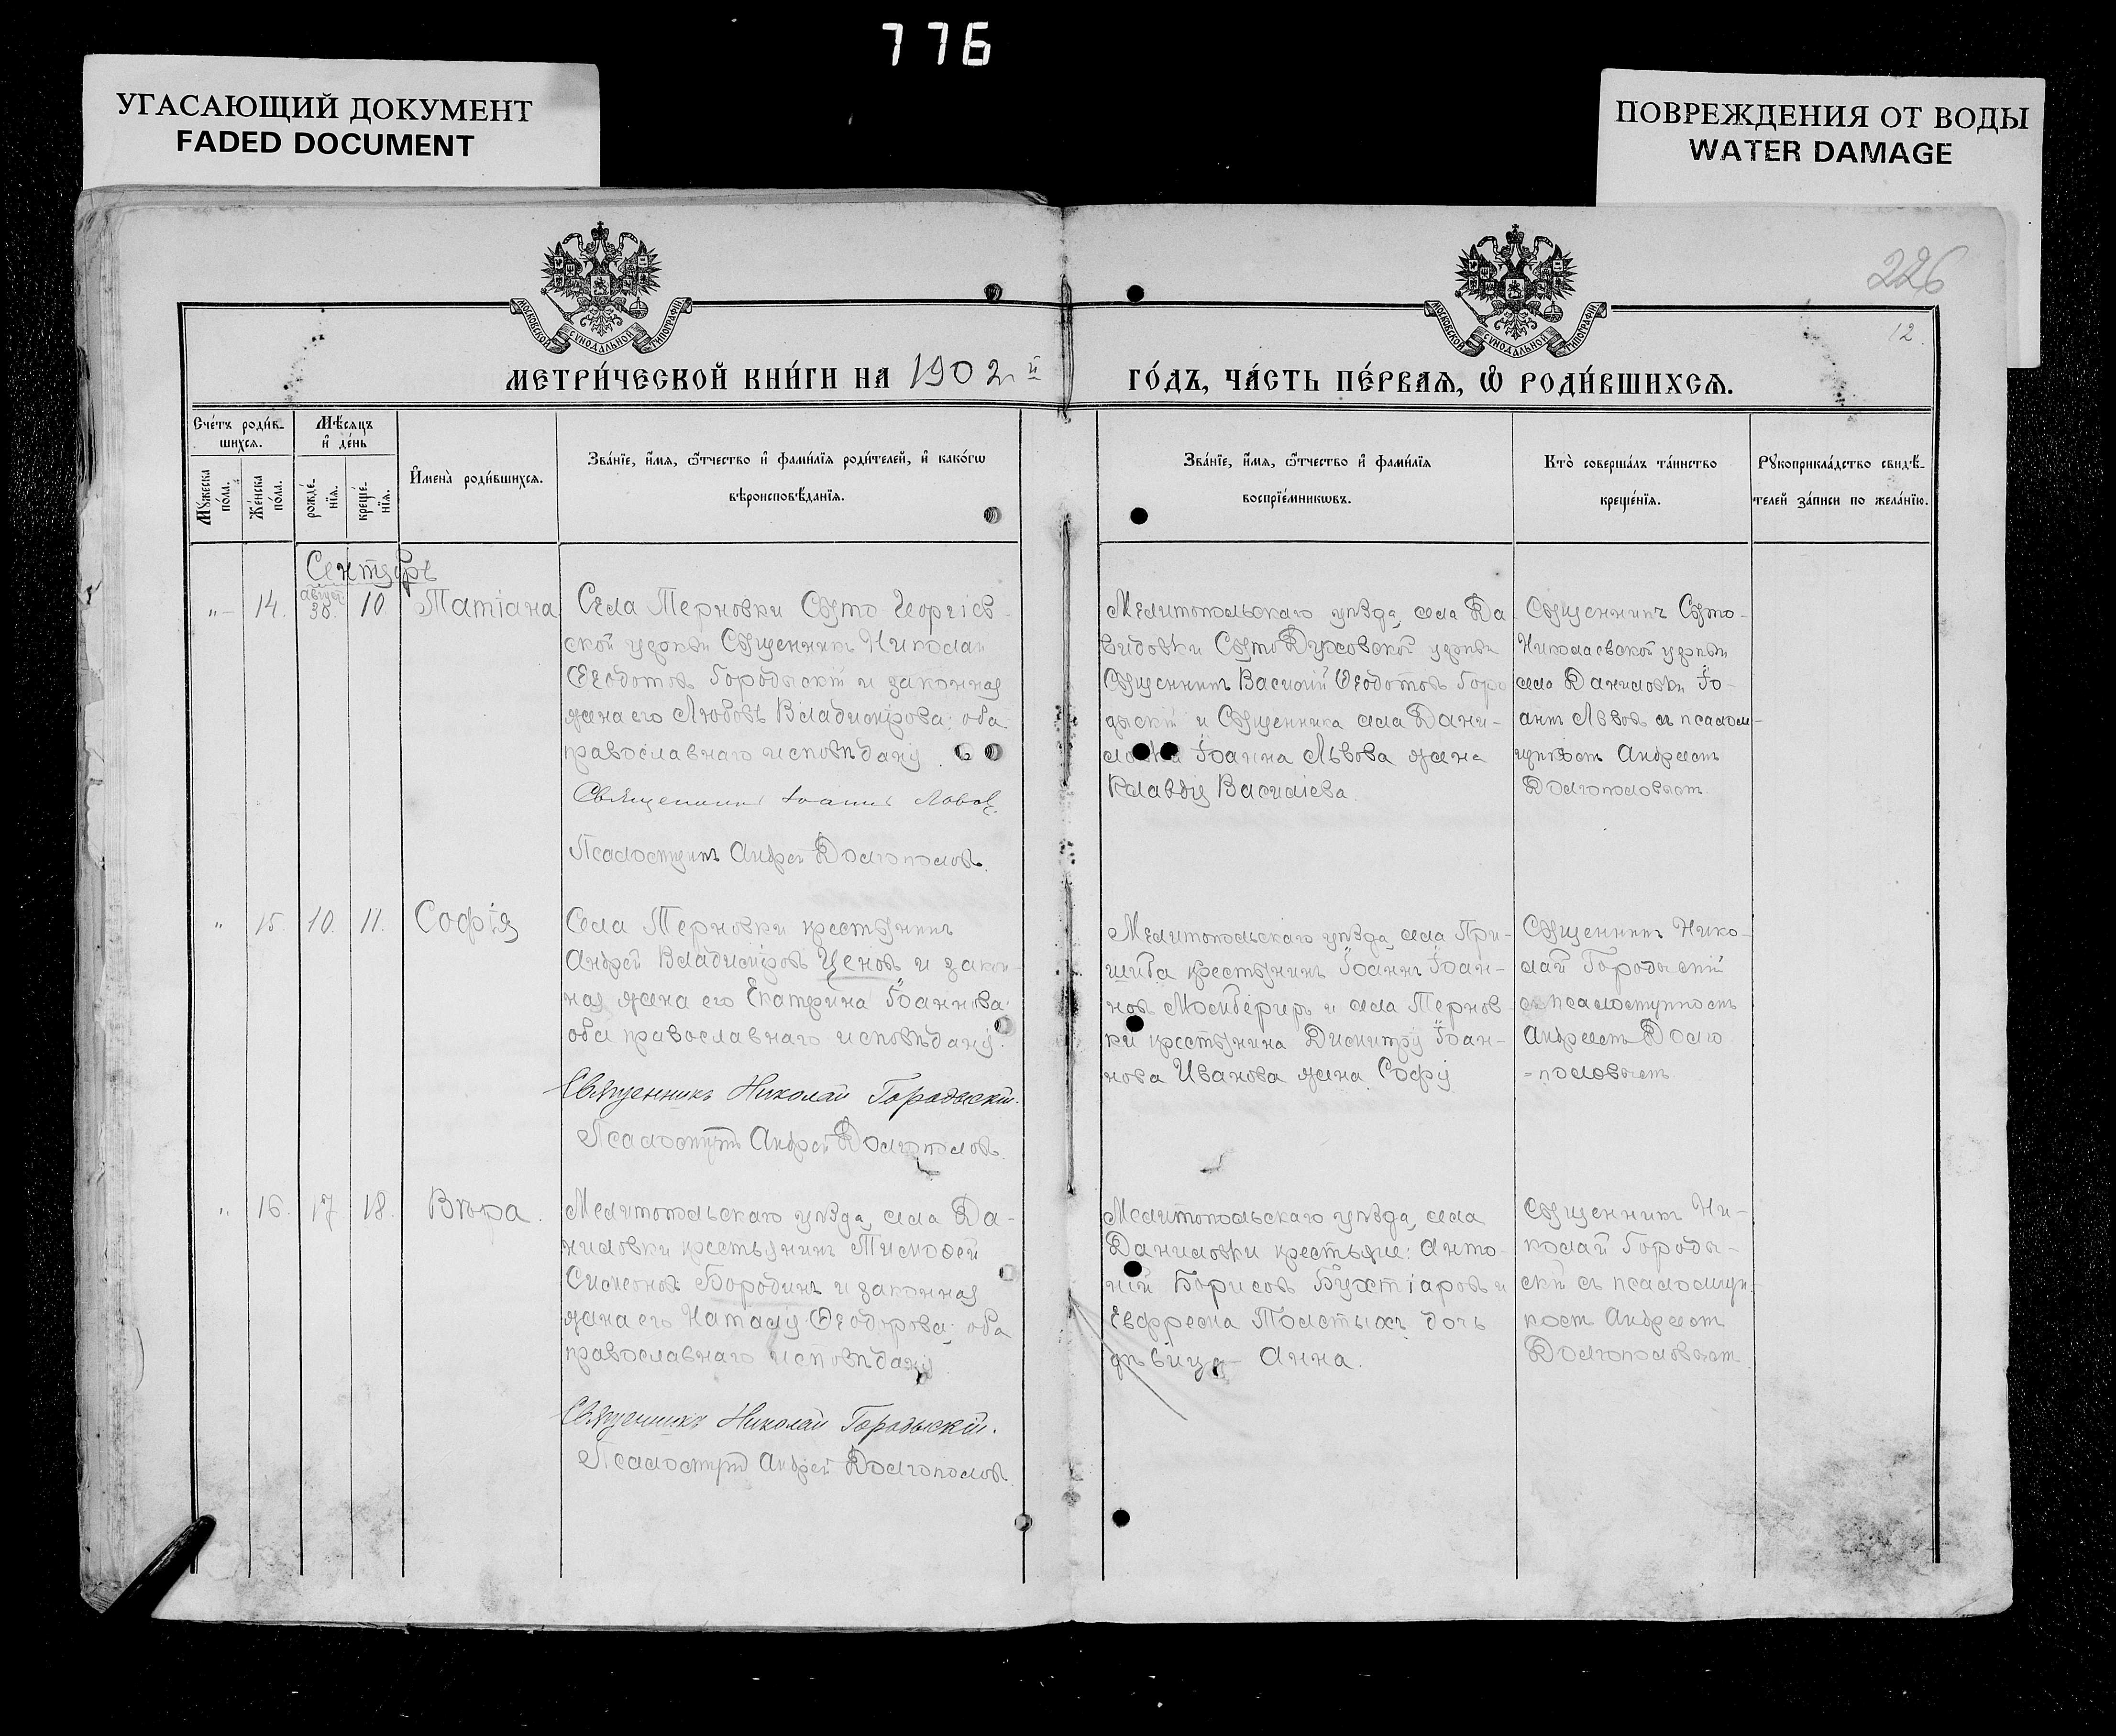 776
УГАСАЮЩИЙ ДОКУМЕНТ
FADED DOCUMENT
ПОВРЕЖДЕНИЯ ОТ ВОДЫ
WATER DAMAGE
226
12.
МОСКОВСКОЙ СѴНОДАЛЬНОЙ ТИПОГРАФІИ
МОСКОВСКОЙ СѴНОДАЛЬНОЙ ТИПОГРАФІИ
МЕТРИ́ЧЕСКОЙ КНИ́ГИ НА 1902й ГО́ДЪ, ЧА́СТЬ ПЕ́РВАЯ, Ѡ҆ РОДИ́ВШИХСЯ.
Сче́тъ роди́в-
шихся.
Мꙋжеска по́ла.
Же́нска по́ла.
Мѣ́сяцъ
и҆ де́нь
рожде́-
нїя.
креще́-
нїя.
И҆мена̀ роди́вшихся.
Зва́нїе, и҆́мя, ѻ҆́тчество и҆ фами́лїя роди́телей, и҆ како́гѡ
вѣроисповѣ́данїя.
Зва́нїе, и҆́мя, ѻ҆́тчество и҆ фами́лїя
воспрїе́мникѡвъ.
Кто̀ соверша́лъ та́инство
креще́нїя.
Рꙋкоприкла́дство свидѣ́-
телей за́писи по жела́нїю.
Сентябрь
"
14.
август.
30.
10
Татіана
Села Терновки Свято Георгіев-
ской церкви Священникъ Николай
Ѳеодотовъ Городыскій и законная
жена его Любовь Владимірова: оба
православнаго исповѣданія.
Священникъ Іоаннъ Львовъ.
Псаломщикъ Андрей Долгополовъ.
Мелитопольскаго уѣзда, села Да
видовки Свято Духовской церкви
Священникъ Василій Ѳеодотовъ Горо
дыскій и Священника села Дани-
ловки Іоанна Львова жена
Клавдія Василіева.
Священникъ Свято-
Николаевской церкви
села Даниловки Іо-
аннъ Львовъ съ псалом-
щикомъ Андреемъ
Долгополовымъ.
"
15.
10.
11.
Софія
Села Терновки крестьянинъ
Андрей Владиміровъ Ценовъ и закон-
ная жена его Екатерина Іоаннова:
оба православнаго исповѣданія.
Священникъ Николай Городыскій.
Псаломщикъ Андрей Долгополовъ.
Мелитопольскаго уѣзда, села При-
шиба крестьянинъ Іоаннъ Іоан-
новъ и села Тернов-
ки крестьянина Димитрія Іоан-
нова Иванова жена Софія
Священникъ Нико-
лай Городыскій
съ псаломщикомъ
Андреемъ Долго
=половымъ.
"
16.
17
18.
Вѣра.
Мелитопольскаго уѣзда, села Да-
ниловки крестьянинъ Тимоѳей
Симеоновъ Бородинъ и законная
жена его Наталія Ѳеодорова: оба
православнаго исповѣданія
Священникъ Николай Городыскій.
Псаломщикъ Андрей Долгополовъ.
Мелитопольскаго уѣзда, села
Даниловки крестьяне: Анто-
ній Борисовъ Бухтіаровъ и
Толстыхъ дочь
дѣвица Анна.
Священникъ Ни-
колай Городы-
скій съ псаломщи-
комъ Андреемъ
Долгополовымъ.